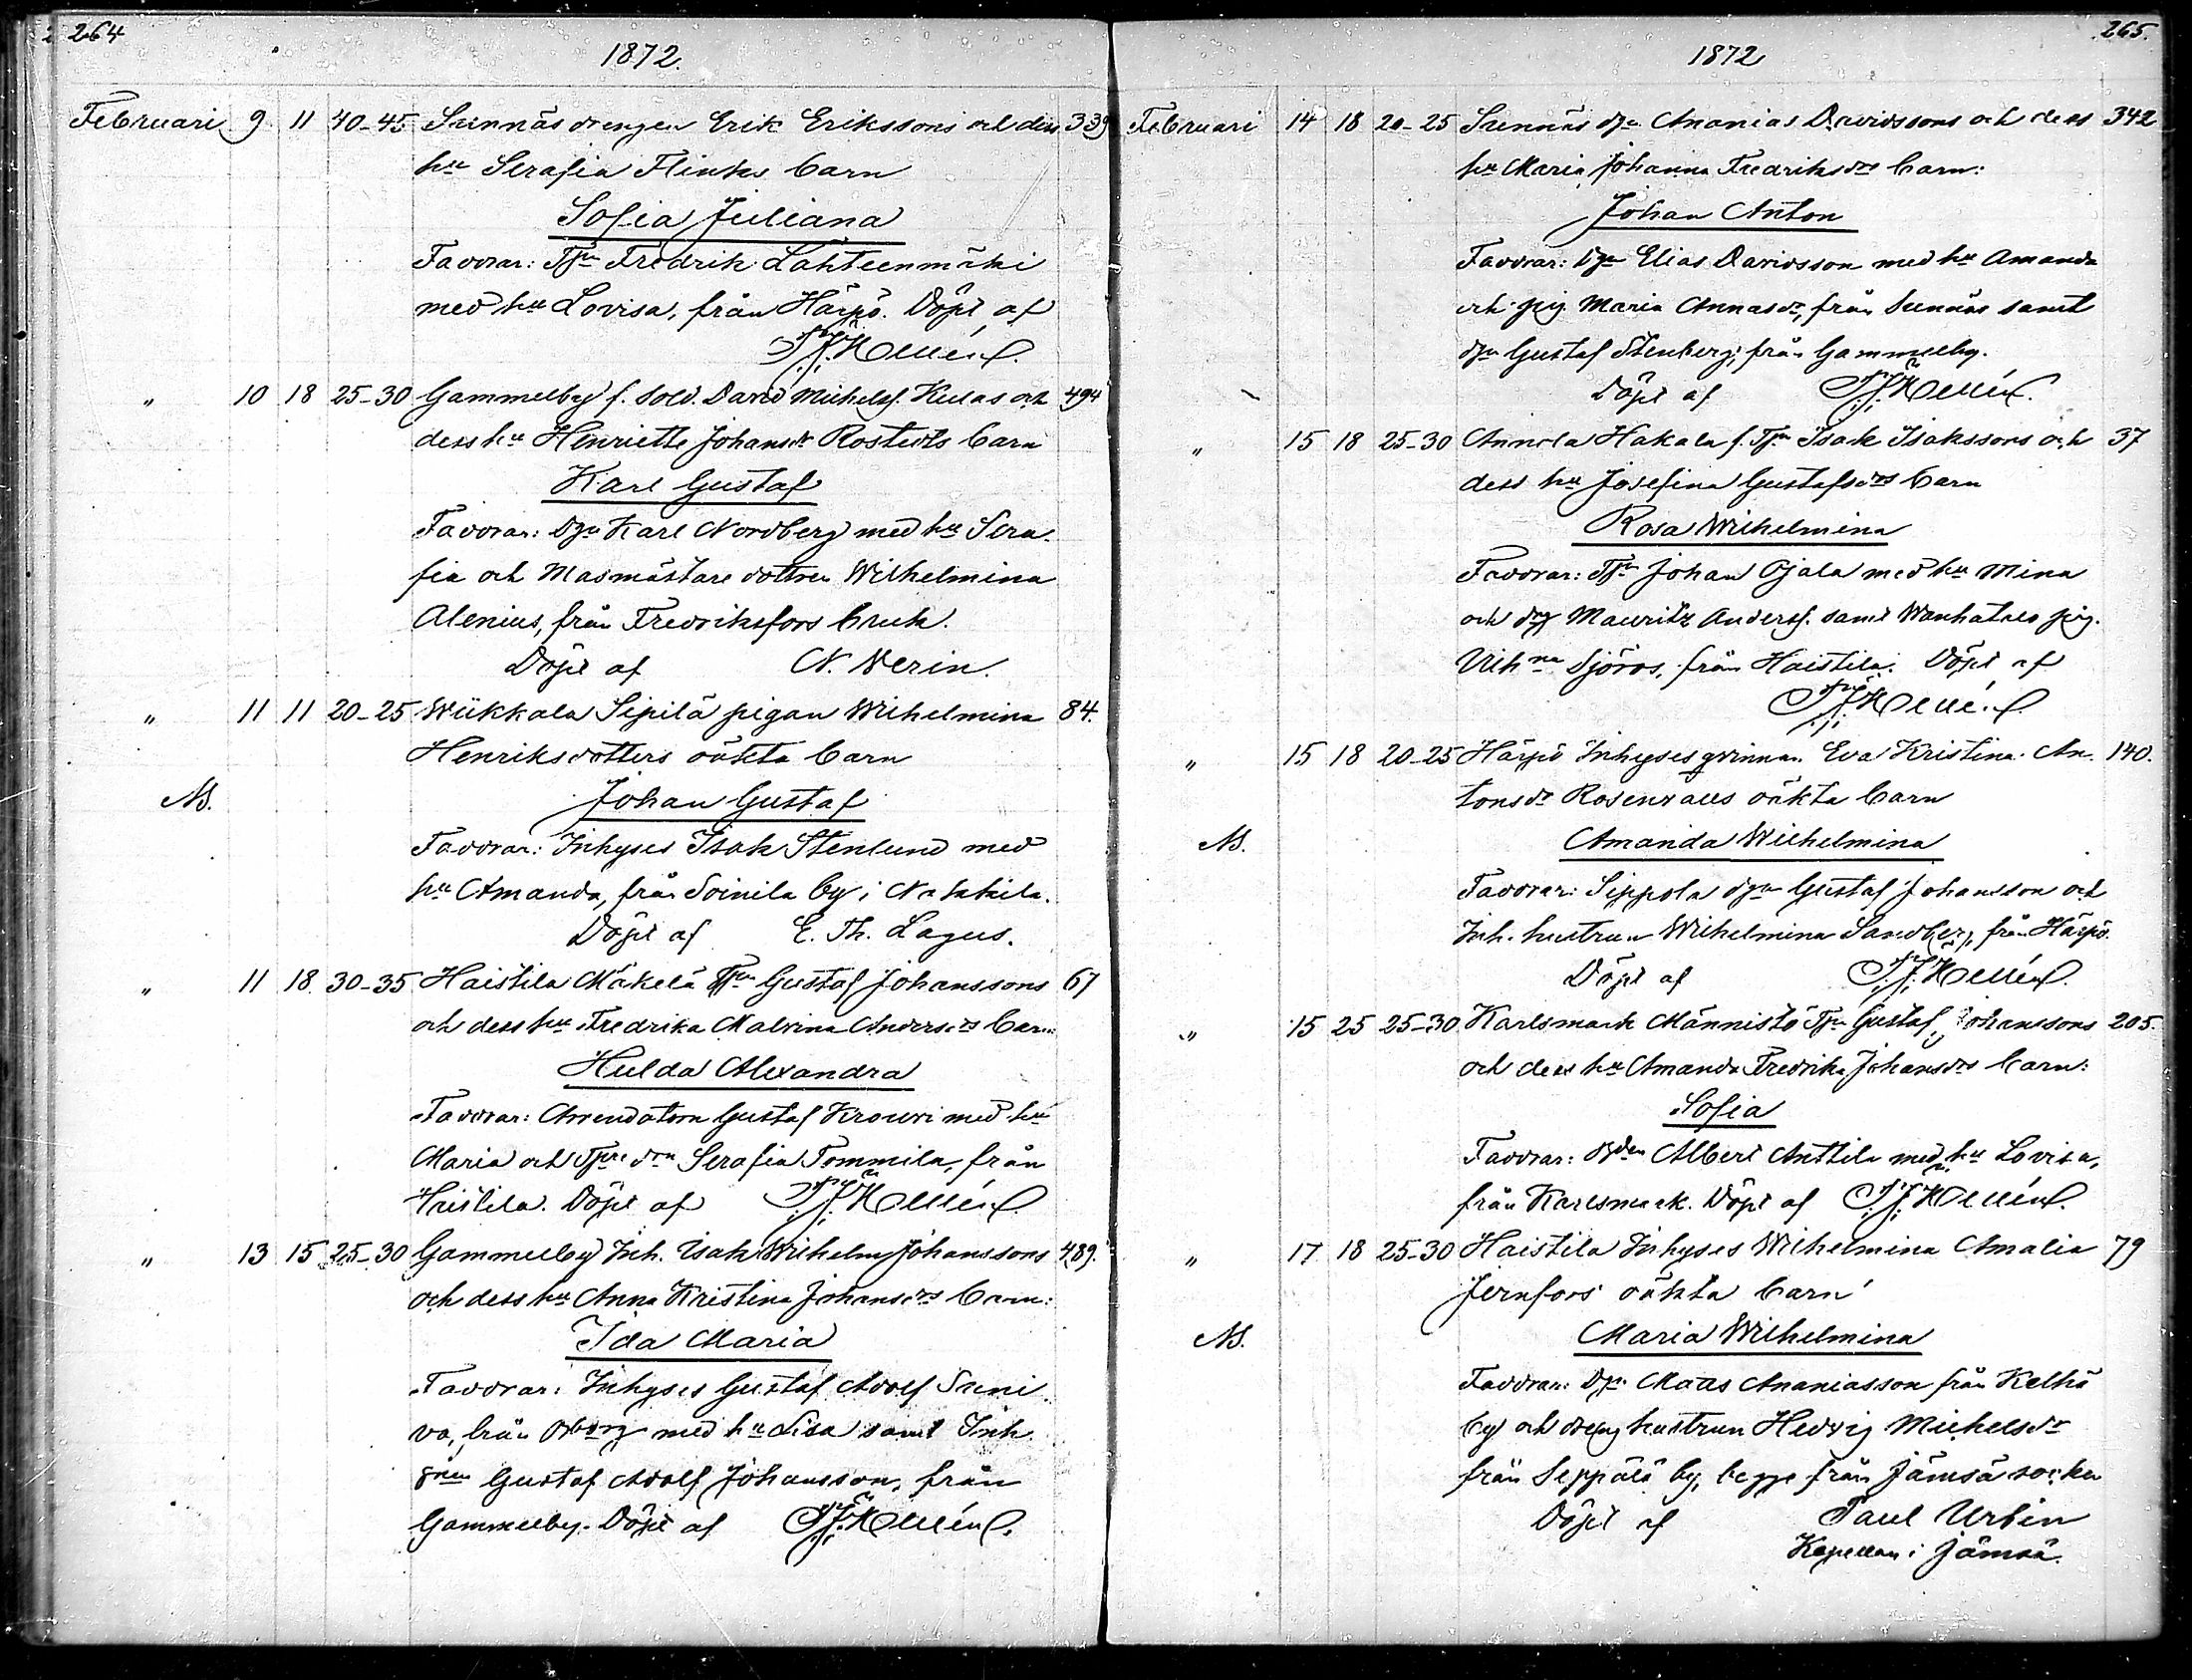 264
1872.
Februari 9 11 40-45 Sunnäs drengen Erik Erikssons och dess 339
hu Serafia Flinks barn
Sofia Juliana
Faddrar: Tpn Fredrik Lähteenmäki
med hu Lovisa, från Härpö. Döpt af
Hellén.
" 10 18 25-30 Gammelby f. sold. David Michelss. Kulas och 494
dess hu Henriette Johansdr Rostedts barn
Karl Gustaf
Faddrar: Dgn Karl Nordberg med hu Sera-
fia och Masmästare dottren Wilhelmina
Alenius, från Fredriksfors bruk.
Döpt af N. Nerin.
" 11 11 20-25 Wiikkala Sipilä pigan Wilhelmina 84.
Henriksdotters oäkta barn
Johan Gustaf
Faddrar: Inhyses Isak Stenlund med
hu Amanda, från Soinila by i Nakkila.
Döpt af E. Th. Lagus.
" 11 18. 30-35 Haistila Mäkelä Tpn Gustaf Johanssons 67
och dess hu Fredrika Malvina Andersdrs barn:
Hulda Alexandra
Faddrar: Arrendatorn Gustaf Krouvi med hu
Maria och drn Serafia Tommila, från
Haistila. Döpt af Hellén.
" 13 15 25-30 Gammelby Inh. Isak Wilhelm Johanssons 489.
och dess hu Anna Kristina Johansdrs barn:
Ida Maria
Faddrar: Inhyses Gustaf Adolf Suni
va, från med hu Lisa samt Inh.
Gustaf Adolf Johansson, från
Gammelby. Döpt af Hellén.
265.
1872
Februari 14 18 20-25 Sunnäs dgn Ananias Davidssons och dess 342
hu Maria Johanna Fredriksdrs barn:
Johan Anton
Faddrar: Dgn Elias Davidsson med hu Amanda
och pig. Maria Annasdr, från Sunnäs samt
dgn Gustaf Stenberg, från Gammelby.
Döpt af Hellén.
" 15 18 25-30 Annola Hakala f. Tpn Isak Isakssons och 37
dess hu Josefina Gustafsdrs barn
Rosa Wilhelmina
Faddrar: Tpn Johan Ojala med hu Mina
och drg Mauritz Anderss. samt Wanhatalo pig.
Vilhna Sjöros, från Haistila. Döpt af
Hellén.
" 15 18 20-25 Härpö Inhyses qvinnan Eva Kristina An- 140.
tonsdr Rosenvalls oäkta barn
Amanda Wilhelmina
Faddrar: Sippola dgn Gustaf Johansson och
Inh. hustrun Wilhelmina Sandberg, från Härpö.
Döpt af Hellén.
" 15 25 25-30 Karlsmark Männistö Tpn Gustaf Johanssons 205.
och dess hu Amanda Fredrika Johansdrs barn:
Sofia
Faddrar: Albert Anttila med hu Lovisa,
från Karlsmark. Döpt af Hellén.
" 17 18 25-30 Haistila Inhyses Wilhelmina Amalia 79
Jernfors oäkta barn
Maria Wilhelmina
Faddrar: Dgn Matts Ananiasson från Kelhä
by och hustrun Hedvig Michelsdr
från Seppälä by, begge från Jämsä socken
Döpt af Paul Urbin
Kapellan i Jämsä.